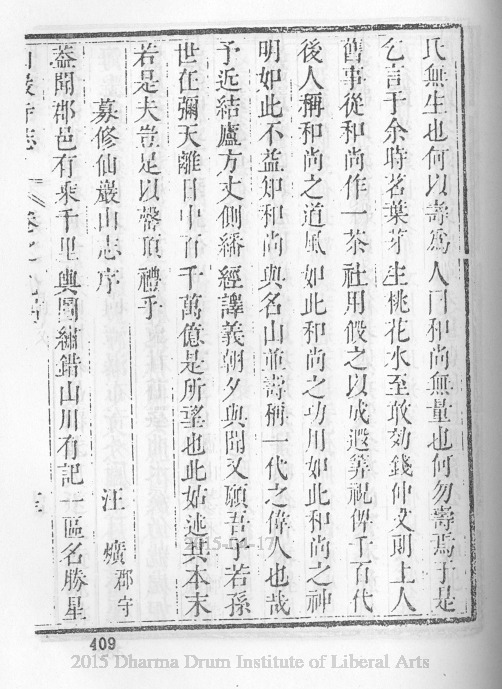 氏無生也何以壽爲人曰和尚無量也何勿壽焉于是
乞言于余時茗葉芽生桃花水至敢効錢仲文則上人
舊事從和尚作一茶社用假之以成遐筭祝俾千百代
後人稱和尚之道風如此和尚之功用如此和尚之神
明如此不益知和尚與名山並壽稱一代之偉人也哉
予近結廬方丈側繙經譯義朝夕與聞又願吾子若孫
世在彌天離日中百千萬億是所望也此姑述其本末
若是夫豈足以罄頂禮乎
募修仙巖山志序
汪爌郡守
蓋聞郡邑有乘千里輿圖繡錯山川有記一區名勝星
巖寺志 卷之
409
2015-04-17
2015 Dharma Drum Institute of Liberal Arts